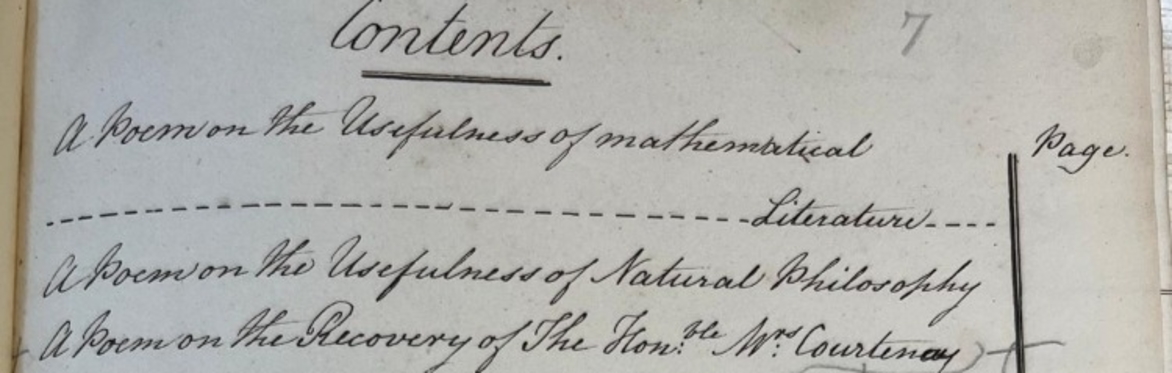 Contents. 7
A Poem on the Usefulness of mathematical Page.
Literature
A Poem on the Usefulness of Natural Philosophy
A Poem on the Recovery of The Hon.ble Mrs. Courtenay